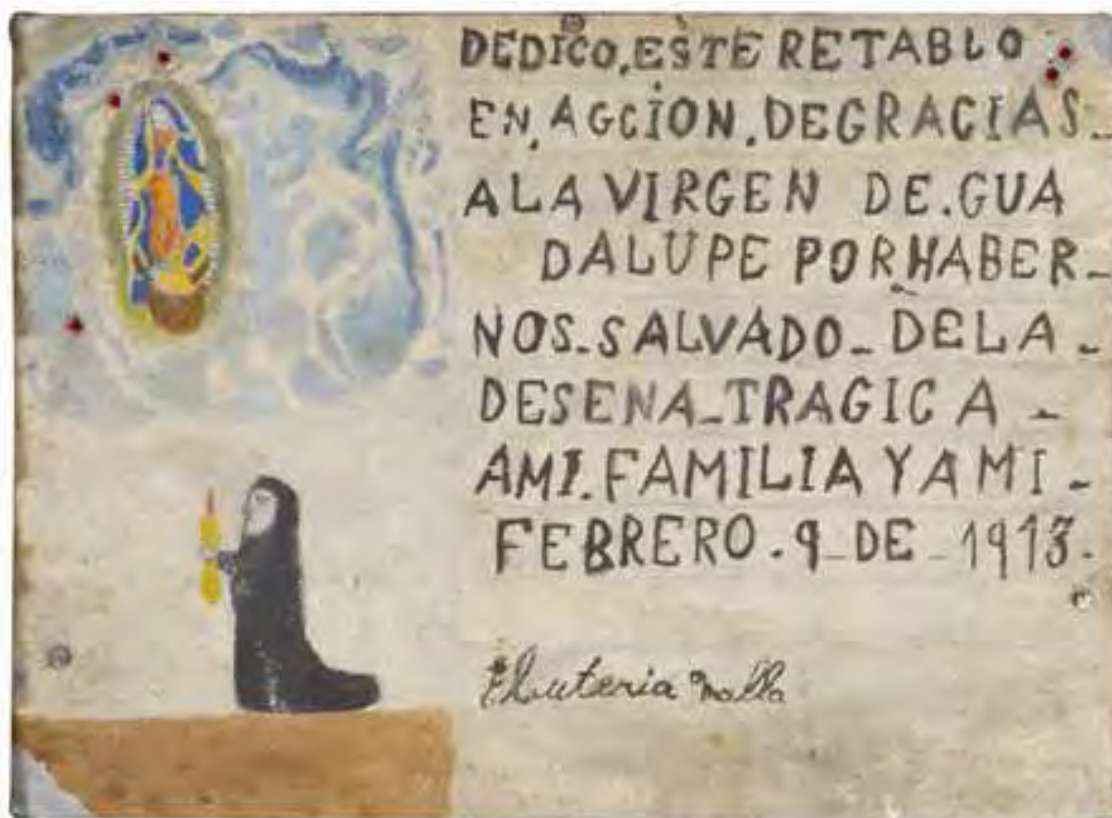 DEDICO,ESTE RETABLO
EN,AGCION,DEGRACIAS_
ALA VIRGEN DE.GUA
DALUPE PORHABER_
NOS_SALVADO_DELA_
DESENA_TRAGICA_
AMI.FAMILIA Y AMI_
FEBRERO.9_DE_1913.
Eleuteria